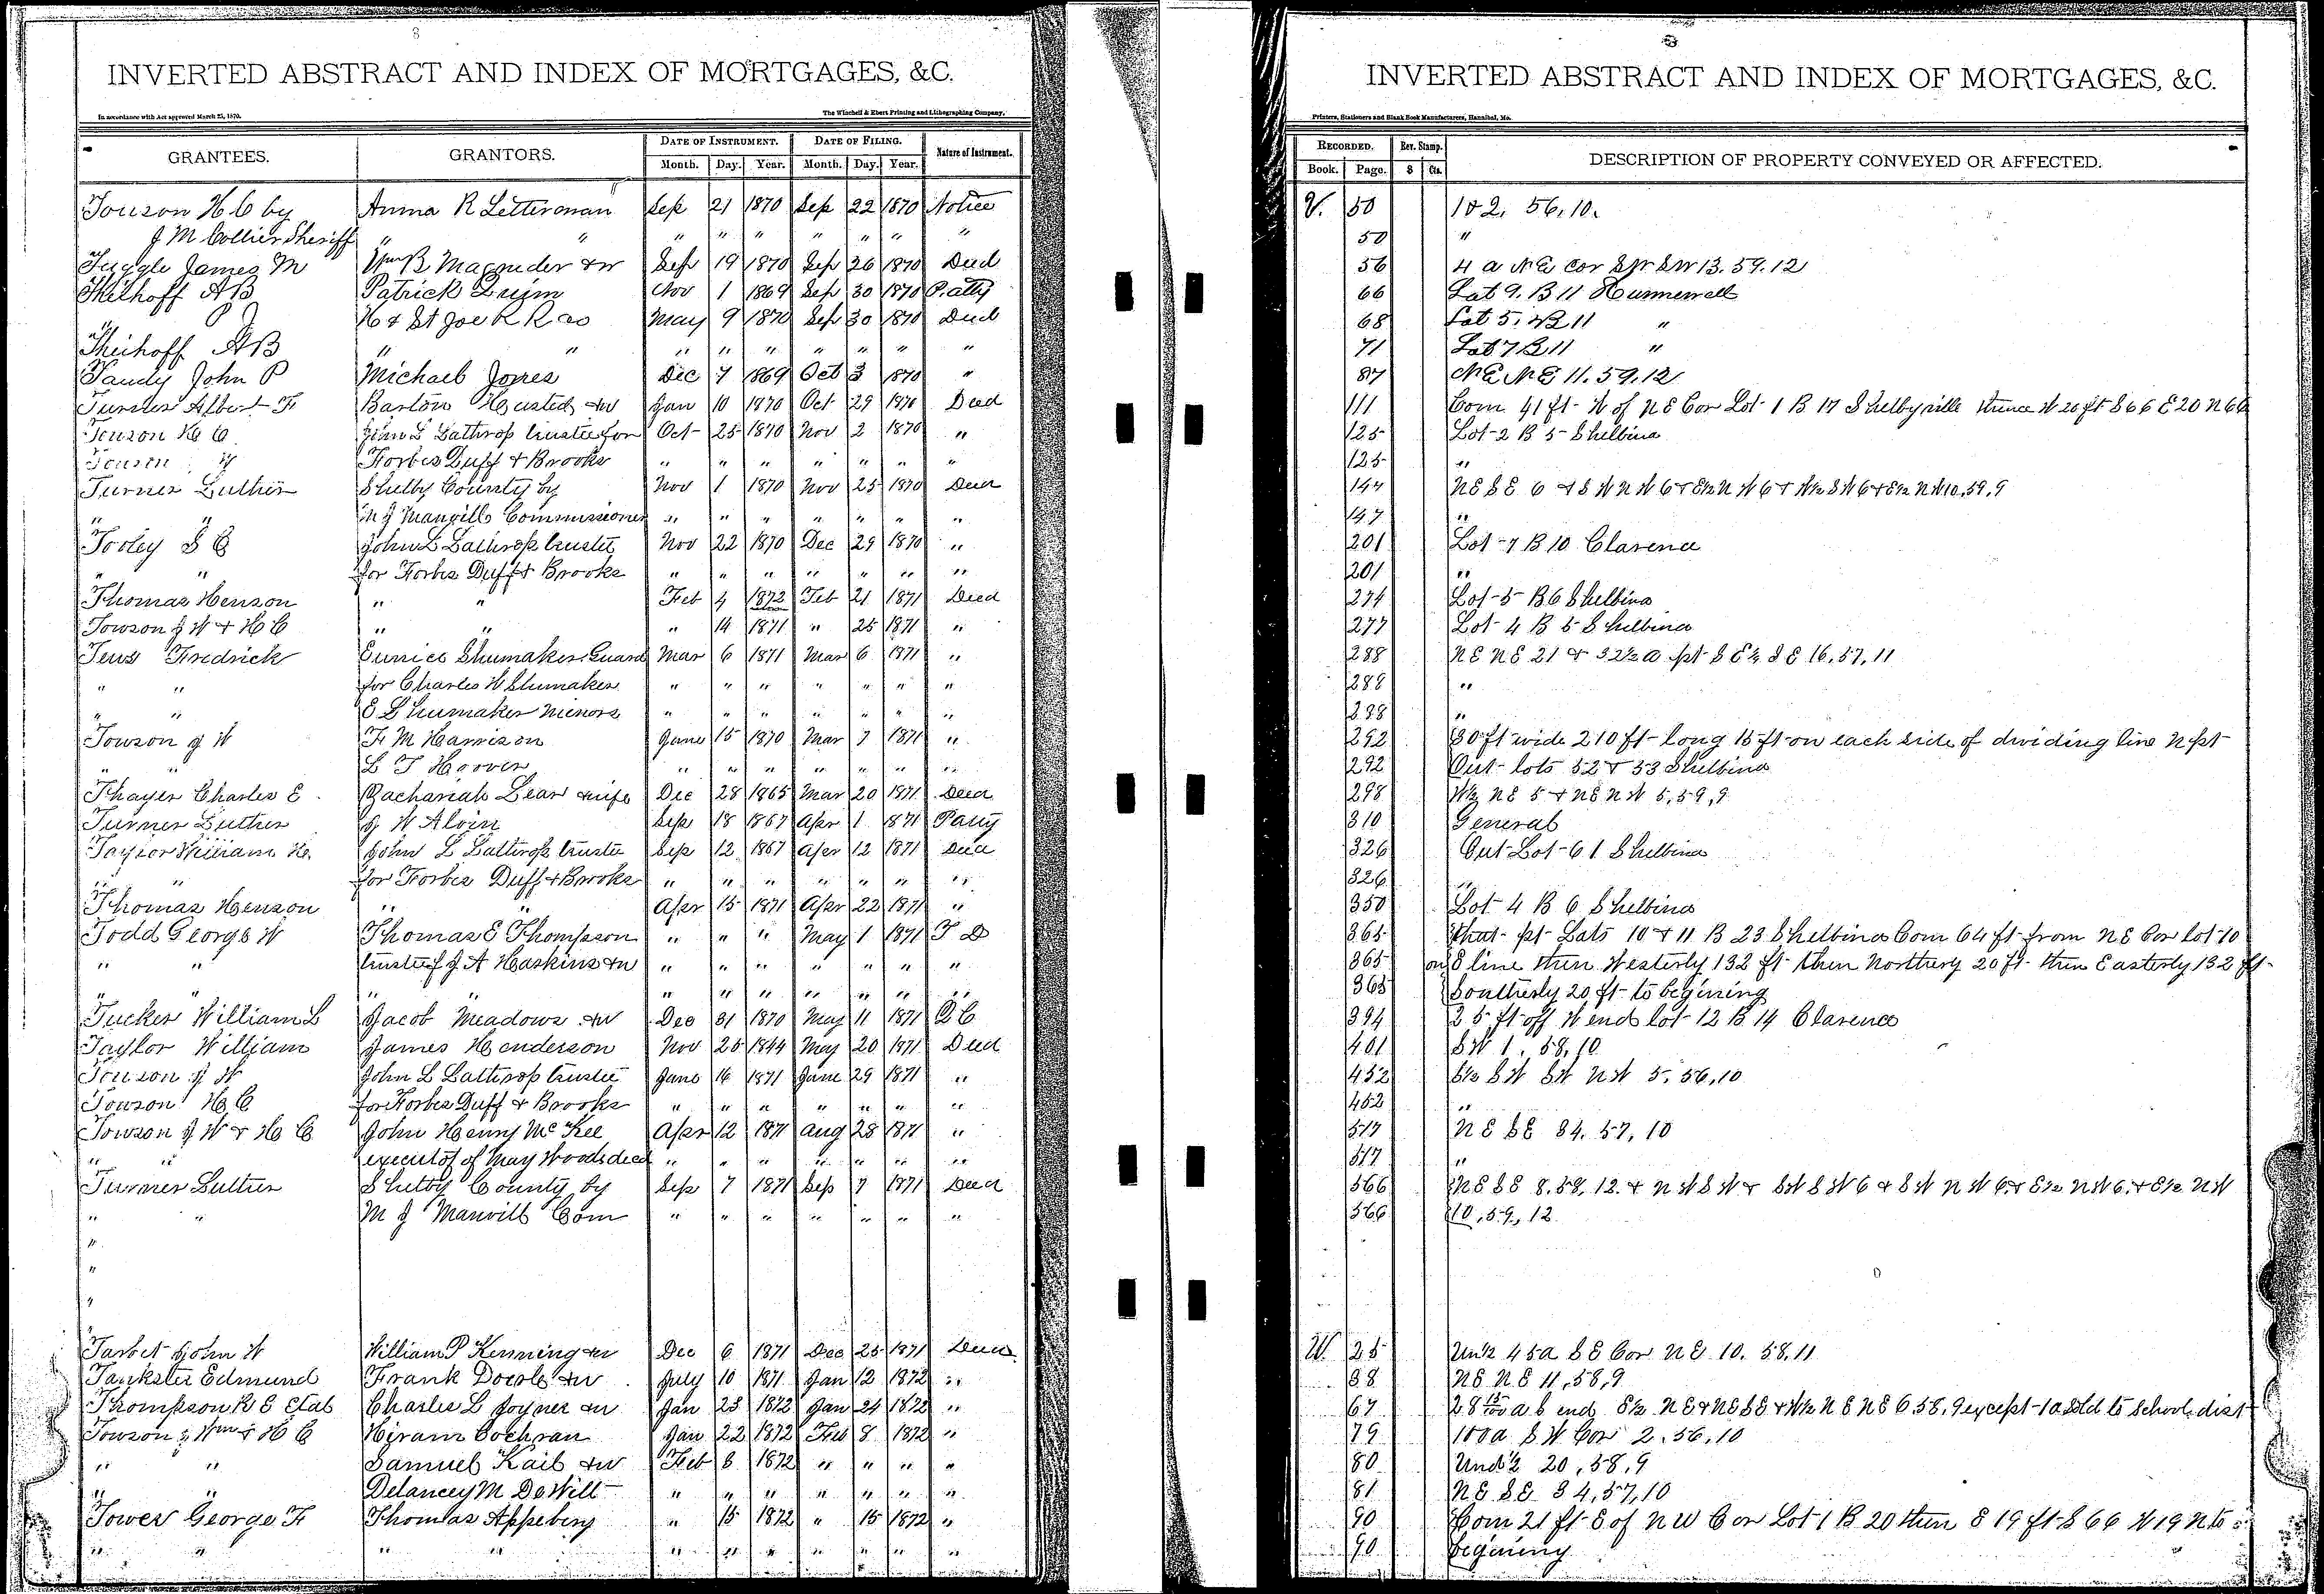 8
INVERTED ABSTRACT AND INDEX OF MORTGAGES, &C.
In accordance with Act approved March 25, 1870.
The Winchell & Ebert Printing and Lithographing Company,
GRANTEES. GRANTORS. DATE OF INSTRUMENT. DATE OF FILING. Nature of Instrument.
Month. Day. Year. Month. Day. Year.
Towson H C by Anna R Letterman Sep 21 1870 Sep 22 1870 Notice
J M Collier Sheriff " " " " " " " " "
Tuggle James M Wm B Magruder & w Sep 19 1870 Sep 26 1870 Deed
Theihoff A B Patrick Nov 1 1869 Sep 30 1870 P. atty
" " H & St Joe R R Co May 9 1870 Sep 30 1870 Deed
Theihoff A B " " " " " " " " "
Tandy John P Michael Jones Dec 7 1869 Oct 3 1870 "
Turner Albert F Barton Husted & w Jan 10 1870 Oct 29 1870 Deed
Towson H C John L Lathrop trustee for Oct 25 1870 Nov 2 1870 "
Towson Forbes Duff & Brooks " " " " " " "
Turner Luther Shelby County by Nov 1 1870 Nov 25 1870 Deed
" " M J Manvill Commissioner " " " " " " "
Tooley S C John L Lathrop trustee Nov 22 1870 Dec 29 1870 "
" " for Forbes Duff & Brooks " " " " " " "
Thomas Henson " " Feb 4 1872 Feb 21 1871 Deed
Towson J W & H C " " " 14 1871 " 25 1871 "
Tews Fredrick Eunice Shumaker Guard Mar 6 1871 Mar 6 1871 "
" " for Charles W Shumaker " " " " " " "
" " E Shumaker minors " " " " " " "
Towson J W F M Harrison June 15 1870 Mar 7 1871 "
" " L T Hoover " " " " " " "
Thayer Charles E. Zachariah Lear & wife Dec 28 1865 Mar 20 1871 Deed
Turner Luther J W Alvin Sep 18 1867 Apr 1 1871 Patty
Taylor William H. John L Lathrop trustee Sep 12 1867 Apr 12 1871 Deed
" " for Forbes Duff & Brooks " " " " " " "
Thomas Henson " " Apr 15 1871 Apr 22 1871 "
Todd George W Thomas E Thompson " " " May 1 1871 T D
" " trustee J A Haskins & w " " " " " " "
" " " " " " " " " "
Tucker William L Jacob Meadows & w Dec 31 1870 May 11 1871 Q C
Taylor William James Henderson Nov 25 1844 May 20 1871 Deed
Towson J W John L Lathrop trustee June 16 1871 June 29 1871 "
Towson H C for Forbes Duff & Brooks " " " " " " "
Towson J W & H C John Henry McKee Apr 12 1871 Aug 28 1871 "
" " executor of May Woods decd " " " " " " "
Turner Luther Shelby County by Sep 7 1871 Sep 7 1871 Deed
" " M J Manvill Com " " " " " " "
"
"
"
"
Tarbet John W William P Kenning & w Dec 6 1871 Dec 25 1871 Deed
Tankster Edmund Frank & w July 10 1871 Jan 12 1872 "
Thompson R E etal Charles L Joyner & w Jan 23 1872 Jan 24 1872 "
Towson J Wm & H C Hiram Cochran Jan 22 1872 Feb 8 1872 "
" " Samuel Kail & w Feb 6 1872 " " " "
" " Delancey M DeWitt " " " " " " "
Tower George F Thomas Appeberg " 15 1872 " 15 1872 "
" " " " " " " " " " "
INVERTED ABSTRACT AND INDEX OF MORTGAGES, &C.
Printers, Stationers and Blank Book Manufacturers, Hannibal, Mo.
RECORDED. Rev. Stamp. DESCRIPTION OF PROPERTY CONVEYED OR AFFECTED.
Book. Page. $ Cts.
V. 50 1 & 2, 56, 10.
50 "
56 4 a N E cor S W S W 13. 59. 12
66 Lot 9. B 11 Hunnewell
68 Lot 5. B 11 "
71 Lot 7 B 11 "
87 N E N E 11. 59. 12
111 Com 41 ft W of N E Cor Lot 1 B 17 Shelbyville thence W 20 ft S 66 E 20 N 66
125 Lot 2 B 5 Shelbina
125 "
147 N E S E 6 & S W N W 6 & E½ N W 6 & W½ S W 6 & E½ N W 10, 59, 9
147 "
201 Lot 7 B 10 Clarence
201 "
274 Lot 5 B 6 Shelbina
277 Lot 4 B 5 Shelbina
288 N E N E 21 & 32½ a pt S E ¼ S E 16, 57, 11
288 "
288 "
292 30 ft wide 210 ft long 15 ft on each side of dividing line N pt
292 Out lots 52 & 53 Shelbina
298 W½ N E 5 & N E N W 5, 59, 9
310 General
326 Out Lot 61 Shelbina
326 "
350 Lot 4 B 6 Shelbina
365 that pt Lots 10 & 11 B 23 Shelbina Com 64 ft from N E Cor lot 10
365 on E line then Westerly 132 ft then Northerly 20 ft then Easterly 132 ft
365 Southerly 20 ft to begining
394 25 ft off W end lot 12 B 14 Clarence
401 S W 1. 58, 10
452 S½ S W S W N W 5. 56, 10
452 "
517 N E S E 34. 57, 10
517 "
566 N E S E 8. 59, 12. & N W S W & S W S W 6 & S W N W 6. & E½ N W 6. & E½ N W
566 10, 59, 12
W. 25 Und½ 45 a S E Cor N E 10. 58. 11
38 N E N E 11, 58, 9
67 28 a S end E½ N E & N E S E & W½ N E N E 6. 58. 9 except 1 a sold to School dist
79 100 a S W Cor 2. 56, 10
80 Und½ 20, 58, 9
81 N E S E 34, 57, 10
90 Com 21 ft E of N W Cor Lot 1 B 20 then E 19 ft S 66 W 19 N to
90 begining